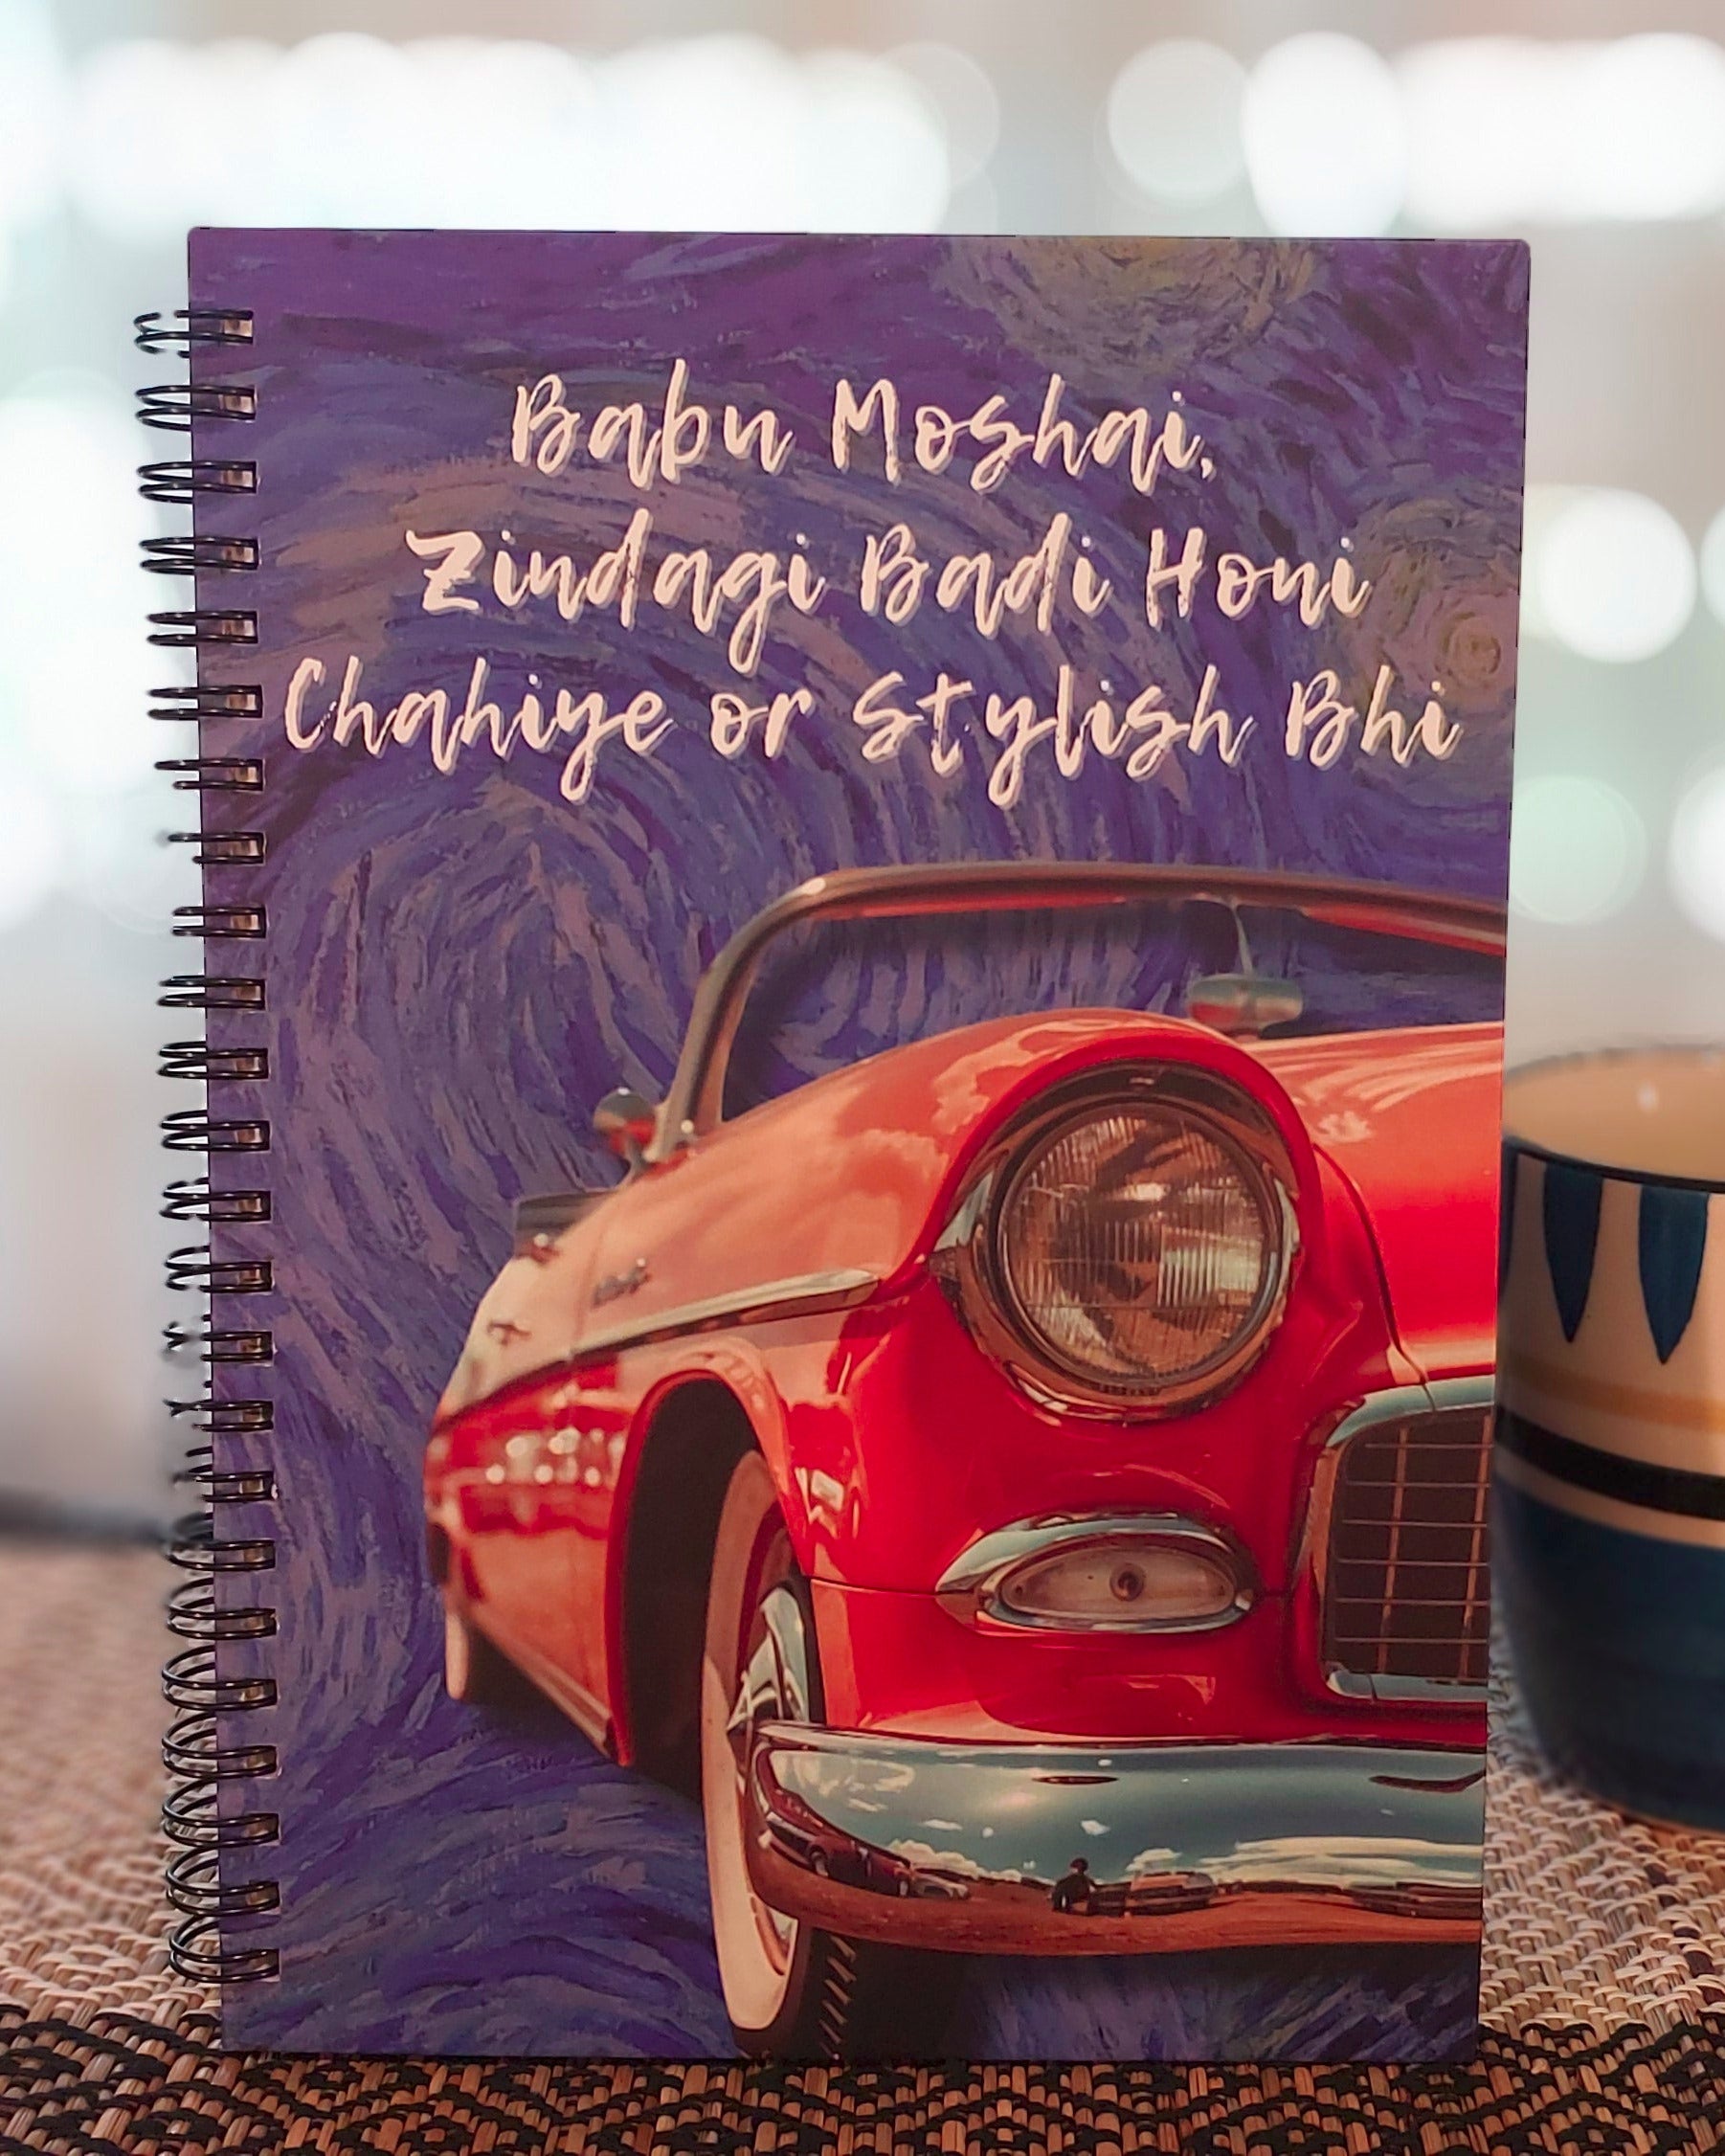 Babu Moshai,
Zindagi Badi Honi
Chahiye or Stylish Bhi